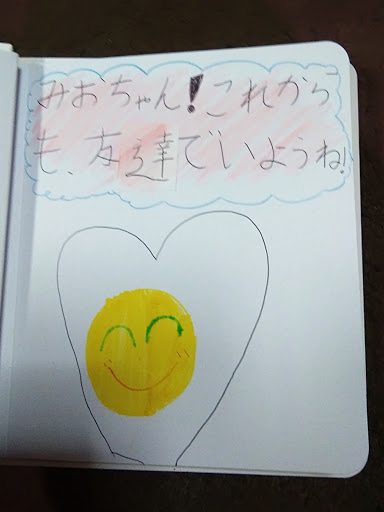 みおちゃん!これから
も、友達でいようね!